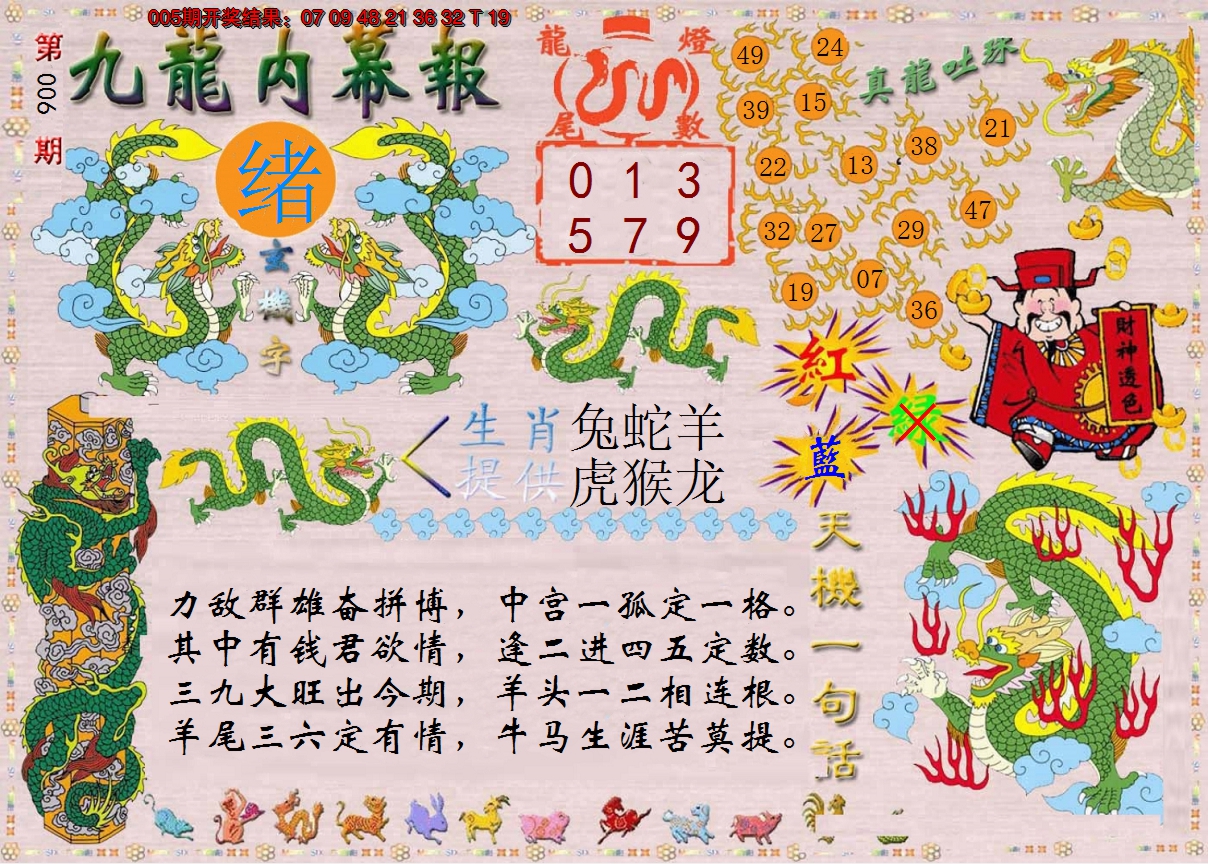 005期开奖结果：07 09 48 21 36 32 T 19
第
006
期
九龍内幕報
绪
玄
機
字
龍 燈
尾 數
0 1 3
5 7 9
真龍吐珠
49 24
39 15
38 21
22 13
47
32 27 29
19 07
36
紅
綠
藍
財神透色
生肖 兔蛇羊
提供 虎猴龙
力敌群雄奋拼博，中宫一孤定一格。
其中有钱君欲情，逢二进四五定数。
三九大旺出今期，羊头一二相连根。
羊尾三六定有情，牛马生涯苦莫提。
天機一句話